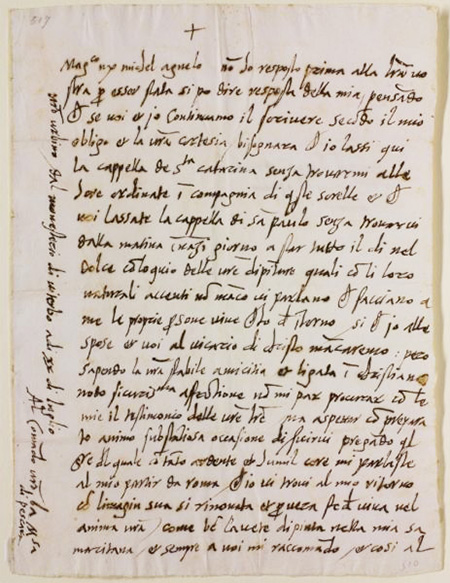 +
Mag.co mr michel agnelo no ho resposto prima alla lra vo
stra p esser stata si po dire resposta della mia, pensado
ch se uoi et jo Continuamo il scriuere secodo il mio
obligo et la vra cortesia bisognara ch io lassi qui
la cappella de S.ta catarina senza trouarmi alle
hore ordinate i compagnia di qste sorelle et ch
uoi lassate la cappella di sa paulo senza trouarui
dalla matina inazi giorno a star tutto il di nel
dolce coloquio delle vre dipiture quali co li loro
naturali accenti no maco ui parlano ch facciano a
me le proprie psone viue ch ho d itorno si ch io alle
spose et uoi al uicario di christo macaremo: pero
sapendo la vra stabile amicitia et ligata i christiano
nodo sicuriss.ma affectione no mi par procurar co le
mie il testimonio delle vre lre ma aspectar co prepara
to animo substatiosa occasione di seruirui pregado ql
S.re del quale co tato ardente et humil core mi parlaste
al mio partir da roma ch io ui troui al mio ritorno
co l imagin sua si rinouata et p uera fede viua nel
anima vra come be l auete dipinta nella mia sa
maritana et sempre a uoi mi raccomado et cosi al
vro urbino dal monesterio di viterbo a di XX di luglio
Al Comado vro la M.sa
di pescara